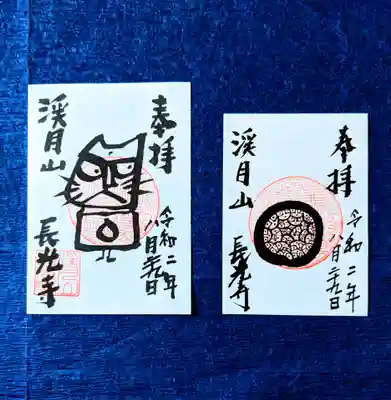 奉拝
令和二年
八月二十九日
渓月山
長光寺
奉拝
令和二年
八月二十九日
渓月山
長光寺